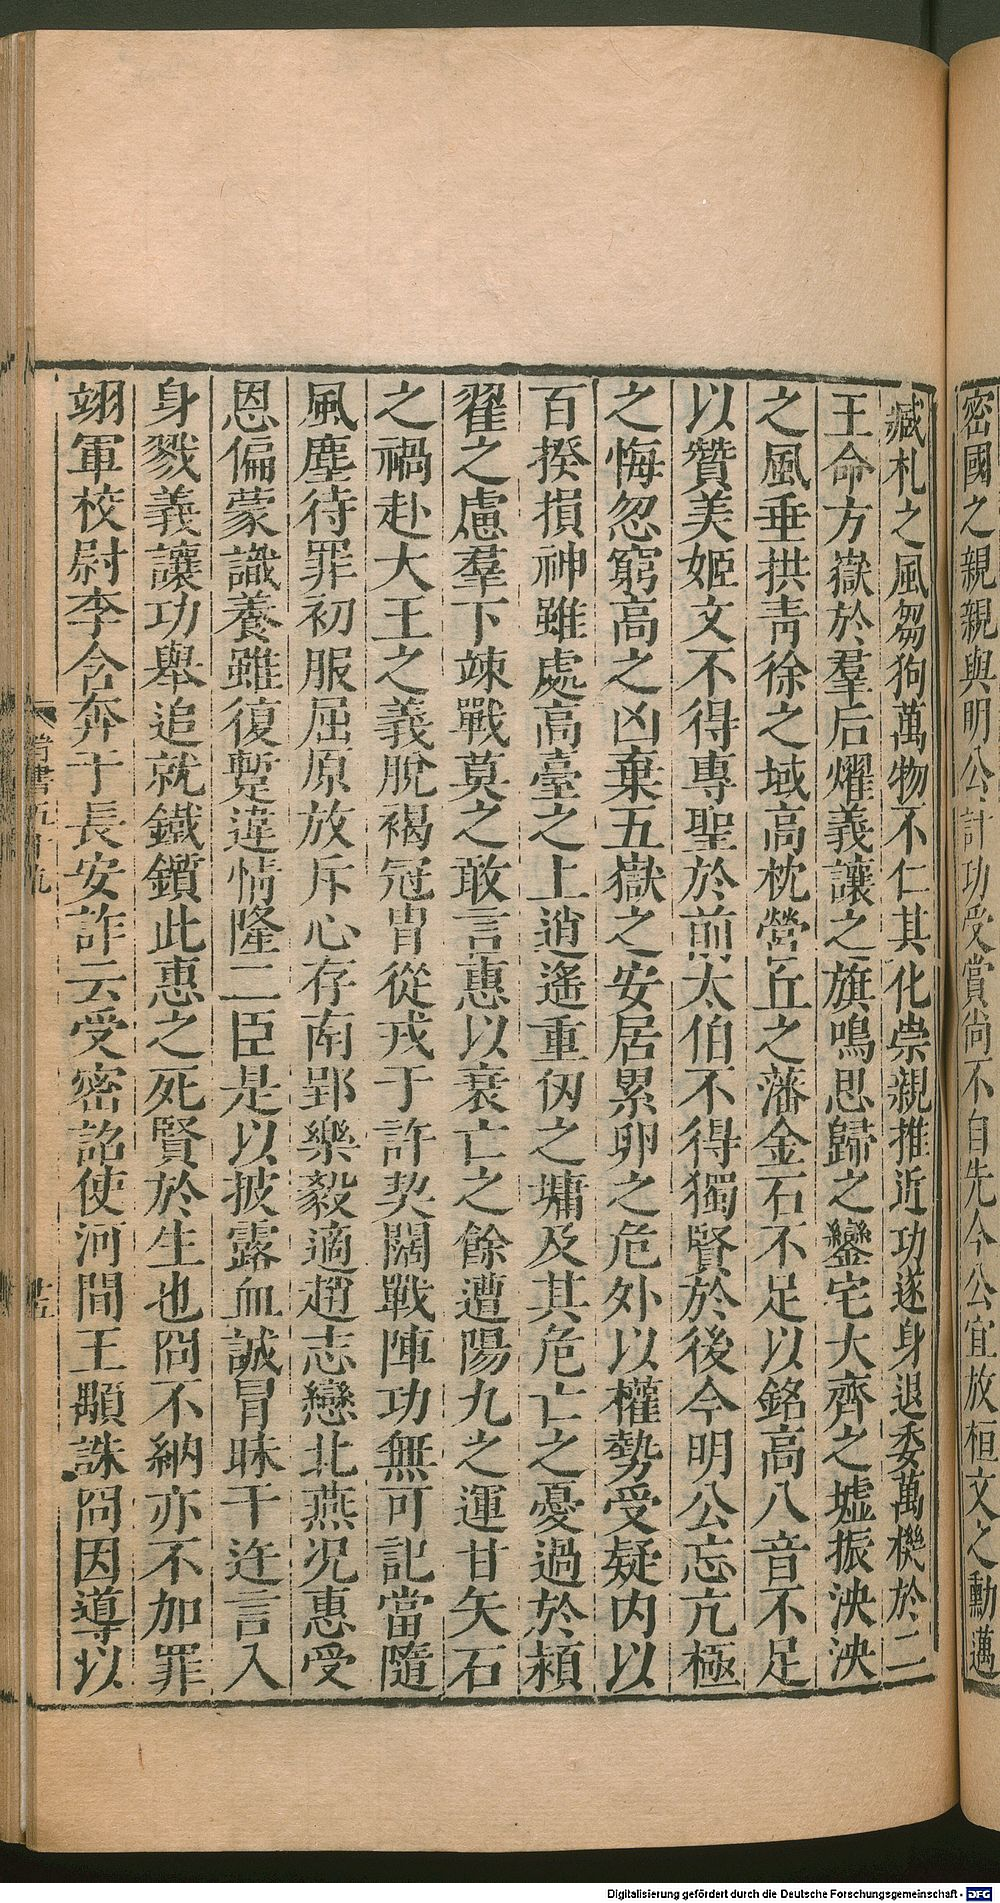 密國之親親與明公計功受賞尚不自先今公宜放桓文之勳邁
臧札之風芻狗萬物不仁其化崇親推近功遂身退委萬機於二
王命方嶽於羣后燿義讓之旗鳴思歸之鑾宅大齊之墟振泱泱
之風垂拱靑徐之域高枕營丘之藩金石不足以銘高八音不足
以贊美姬文不得專聖於前太伯不得獨賢於後今明公忘亢極
之悔忽窮高之凶棄五嶽之安居累卵之危外以權勢受疑内以
百揆損神雖處高臺之上逍遙重仞之墉及其危亡之憂過於潁
翟之慮羣下竦戰莫之敢言惠以衰亡之餘遭陽九之運甘矢石
之禍赴大王之義脫褐冠胄從戎于許契闊戰陣功無可記當隨
風塵待罪初服屈原放斥心存南郢樂毅適趙志戀北燕况惠受
恩偏蒙識養雖復蹔違情隆二臣是以披露血誠冒昧干迕言入
身戮義讓功舉追就鐵鑕此惠之死賢於生也冏不納亦不加罪
翊軍校尉李含奔于長安詐云受密詔使河間王顒誅冏因導以
晉書五十九